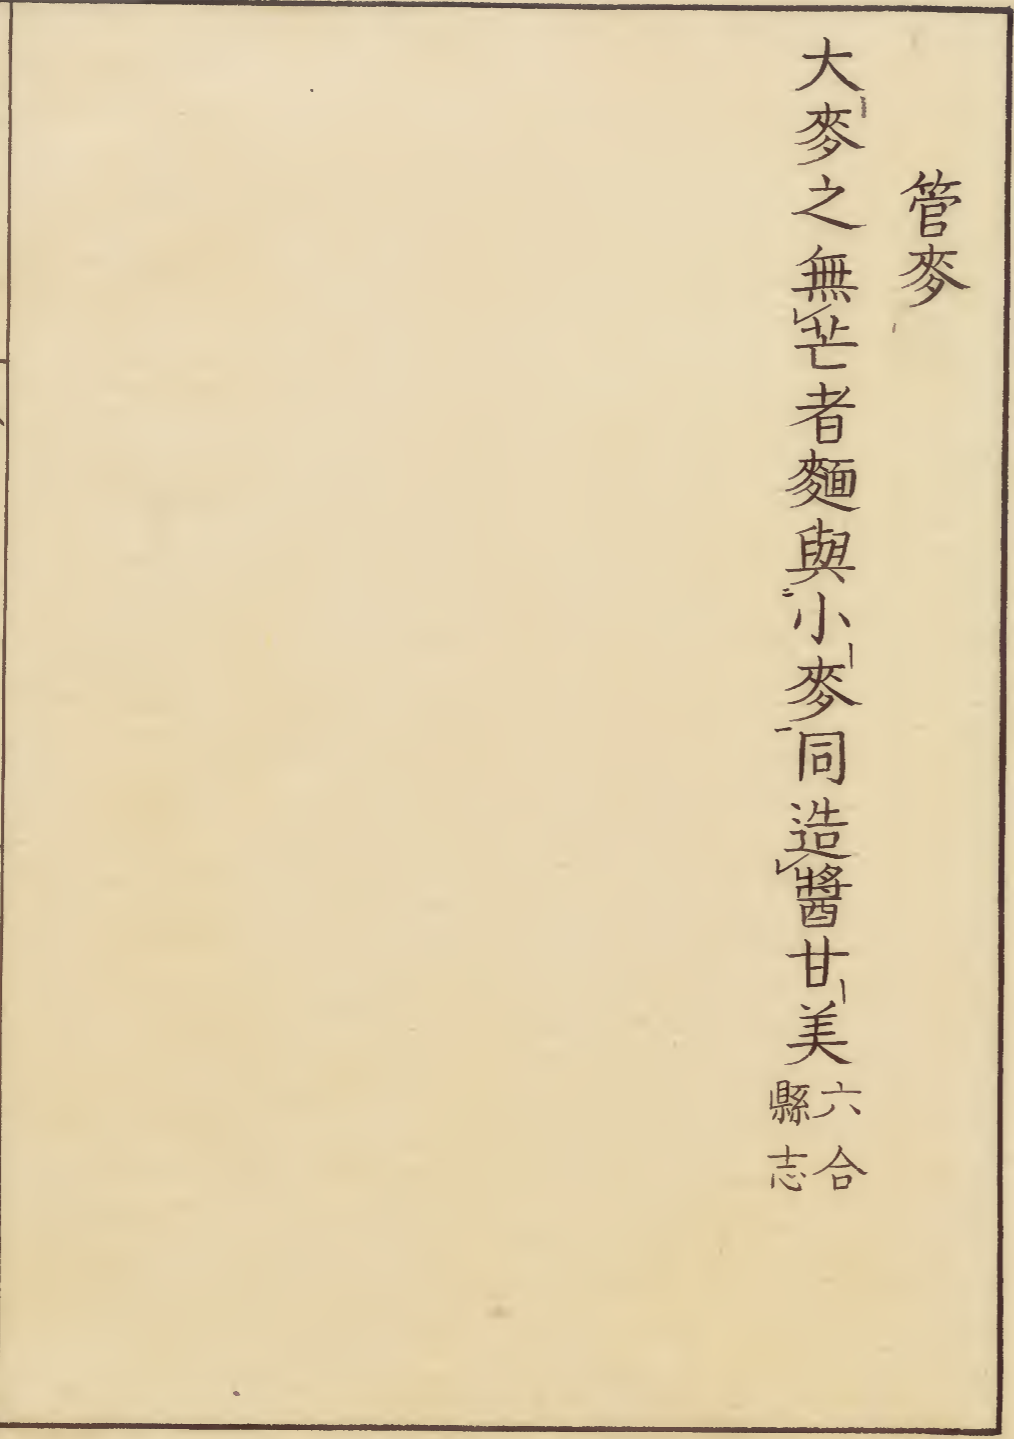 管麥
大麥之無芒者麵與小麥同造醬甘美六合縣志